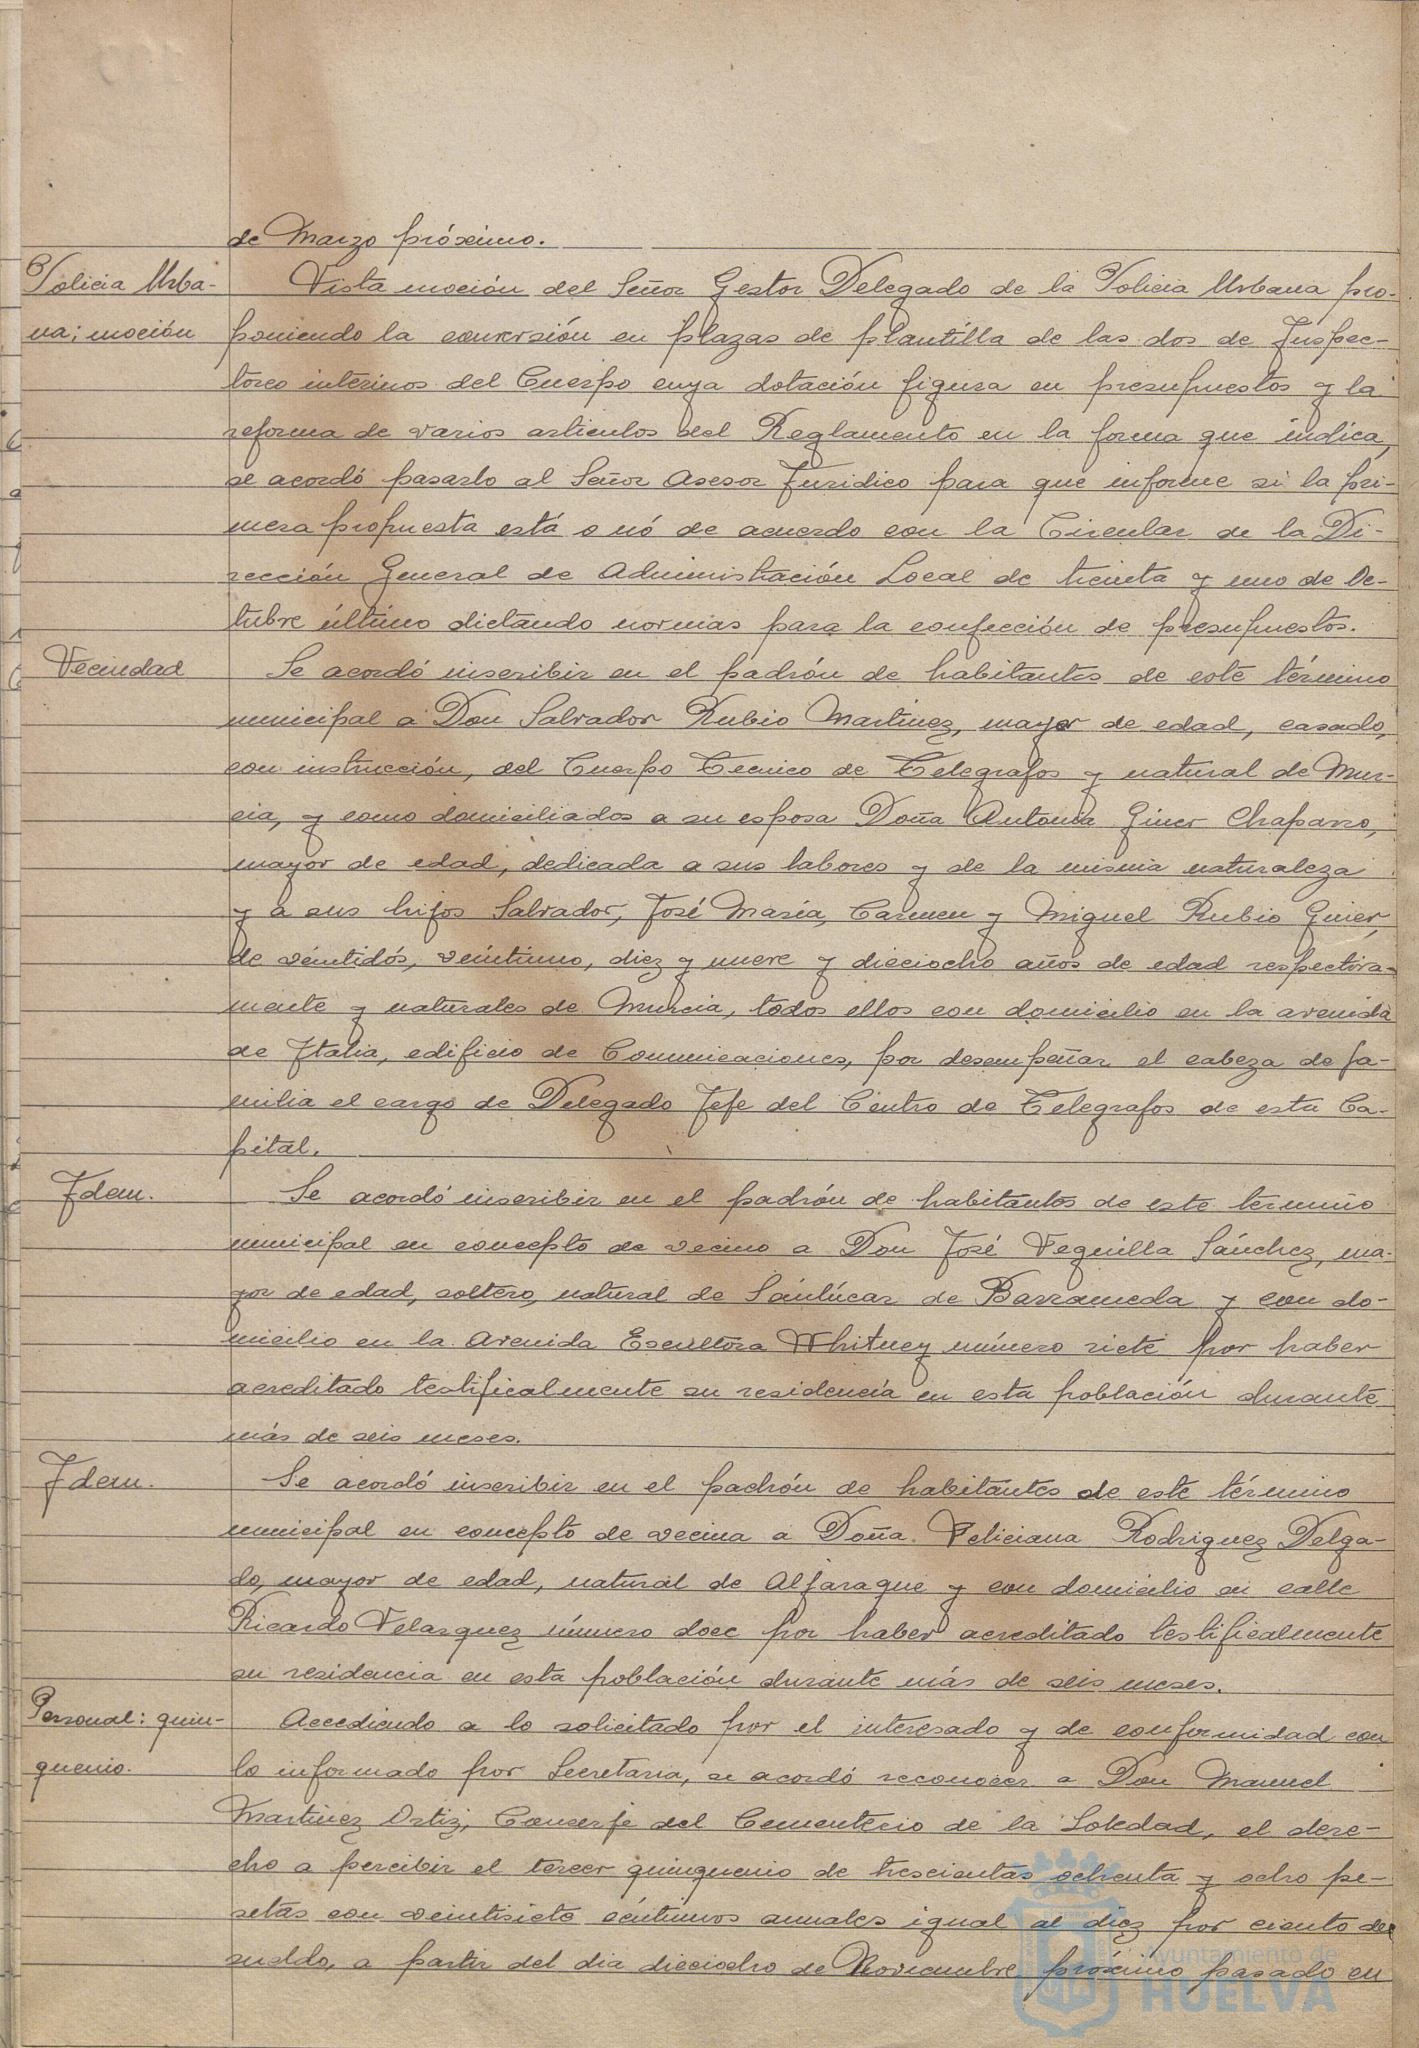 de Marzo próximo.
Policia Urba-
na; moción
Vista moción del Señor Gestor Delegado de la Policia Urbana pro-
poniendo la conversión en plazas de plantilla de las dos de Inspec-
tores interinos del Cuerpo cuya dotación figura en presupuestos y la
reforma de varios articulos del Reglamento en la forma que indica,
se acordó pasarlo al Señor Asesor Juridico para que informe si la pri-
mera propuesta está o nó de acuerdo con la Circular de la Di-
rección General de Administración Local de treinta y uno de Oc-
tubre último dictando normas para la confección de presupuestos.
Vecindad
Se acordó inscribir en el padrón de habitantes de este término
municipal a Don Salvador Rubio Martinez, mayor de edad, casado,
con instrucción, del Cuerpo Tecnico de Telegrafos y natural de Mur-
cia, y como domiciliados a su esposa Doña Antonia Giner Chaparro,
mayor de edad, dedicada a sus labores y de la misma naturaleza
y a sus hijos Salvador, José Maria, Carmen y Miguel Rubio Giner,
de veintidós, veintiuno, diez y nueve y dieciocho años de edad respectiva-
mente y naturales de Murcia, todos ellos con domicilio en la avenida
de Italia, edificio de Comunicaciones, por desempeñar el cabeza de fa-
milia el cargo de Delegado Jefe del Centro de Telegrafos de esta Ca-
pital.
Idem.
Se acordó inscribir en el padrón de habitantes de este término
municipal en concepto de vecino a Don José Veguilla Sánchez, ma-
yor de edad, soltero, natural de Sanlúcar de Barrameda y con do-
micilio en la Avenida Escultora Whitney número siete por haber
acreditado testificalmente su residencia en esta población durante
más de seis meses.
Idem.
Se acordó inscribir en el padrón de habitantes de este término
municipal en concepto de vecina a Doña Feliciana Rodriguez Delga-
do, mayor de edad, natural de Aljaraque y con domicilio en calle
Ricardo Velazquez número doce por haber acreditado testificalmente
su residencia en esta población durante más de seis meses.
Personal: quin-
quenio.
Accediendo a lo solicitado por el interesado y de conformidad con
lo informado por Secretaria, se acordó reconocer a Don Manuel
Martinez Ortiz, Conserje del Cementerio de la Soledad, el dere-
cho a percibir el tercer quinquenio de trescientas ochenta y ocho pe-
setas con veintisiete céntimos anuales igual al diez por ciento del
sueldo, a partir del dia dieciocho de Noviembre próximo pasado en
Ayuntamiento de
HUELVA